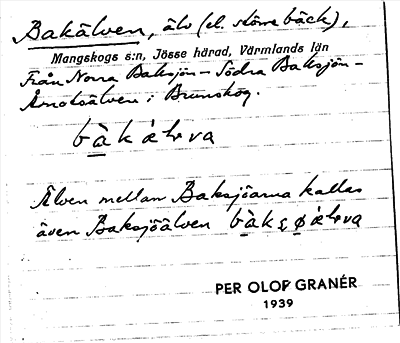 Bakälven, älv (el. större bäck),
Mangskogs s:n, Jösse härad, Värmlands län
Från Norra Baksjön – Södra Baksjön –
i Brunskog.
bàkæ̀lva
Älven mellan Baksjöarna kallas
även Baksjöälven
PER OLOF GRANÉR
1939